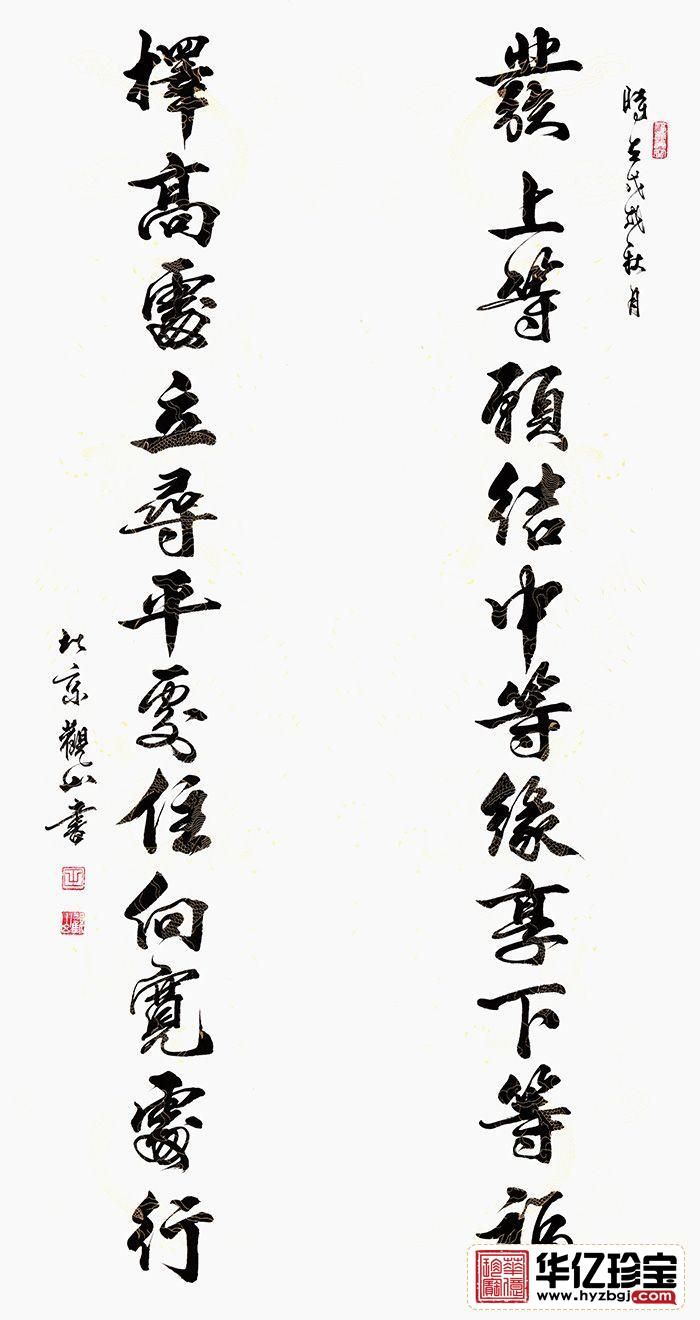 時在戊戌秋月
發上等願結中等緣享下等福
擇高處立尋平處住向寬處行
北京觀山書
華億珍寶
华亿珍宝
www.hyzbgj.com